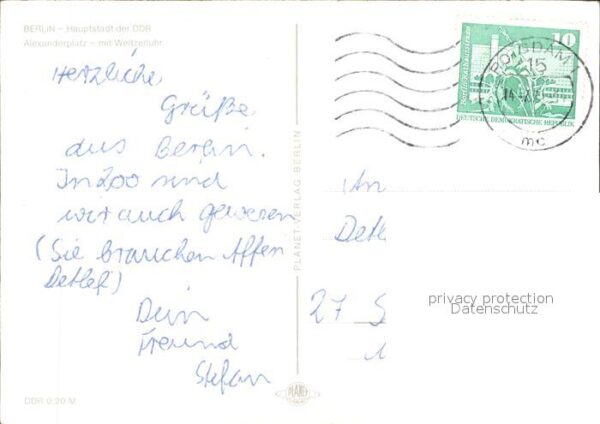 BERLIN – Hauptstadt der DDR
Alexanderplatz – mit Weltzeituhr
Herzliche
Grüße
aus Berlin.
Im Zoo sind
wir auch gewesen
(Sie brauchen Affen
Detlef)
Dein
Freund
Stefan
DDR 0,20 M
PLANET-VERLAG BERLIN
PLANET
10
Berlin, Rathausstraße
DEUTSCHE DEMOKRATISCHE REPUBLIK
POTSDAM
15
mc
An
Detl
27 S
privacy protection
Datenschutz